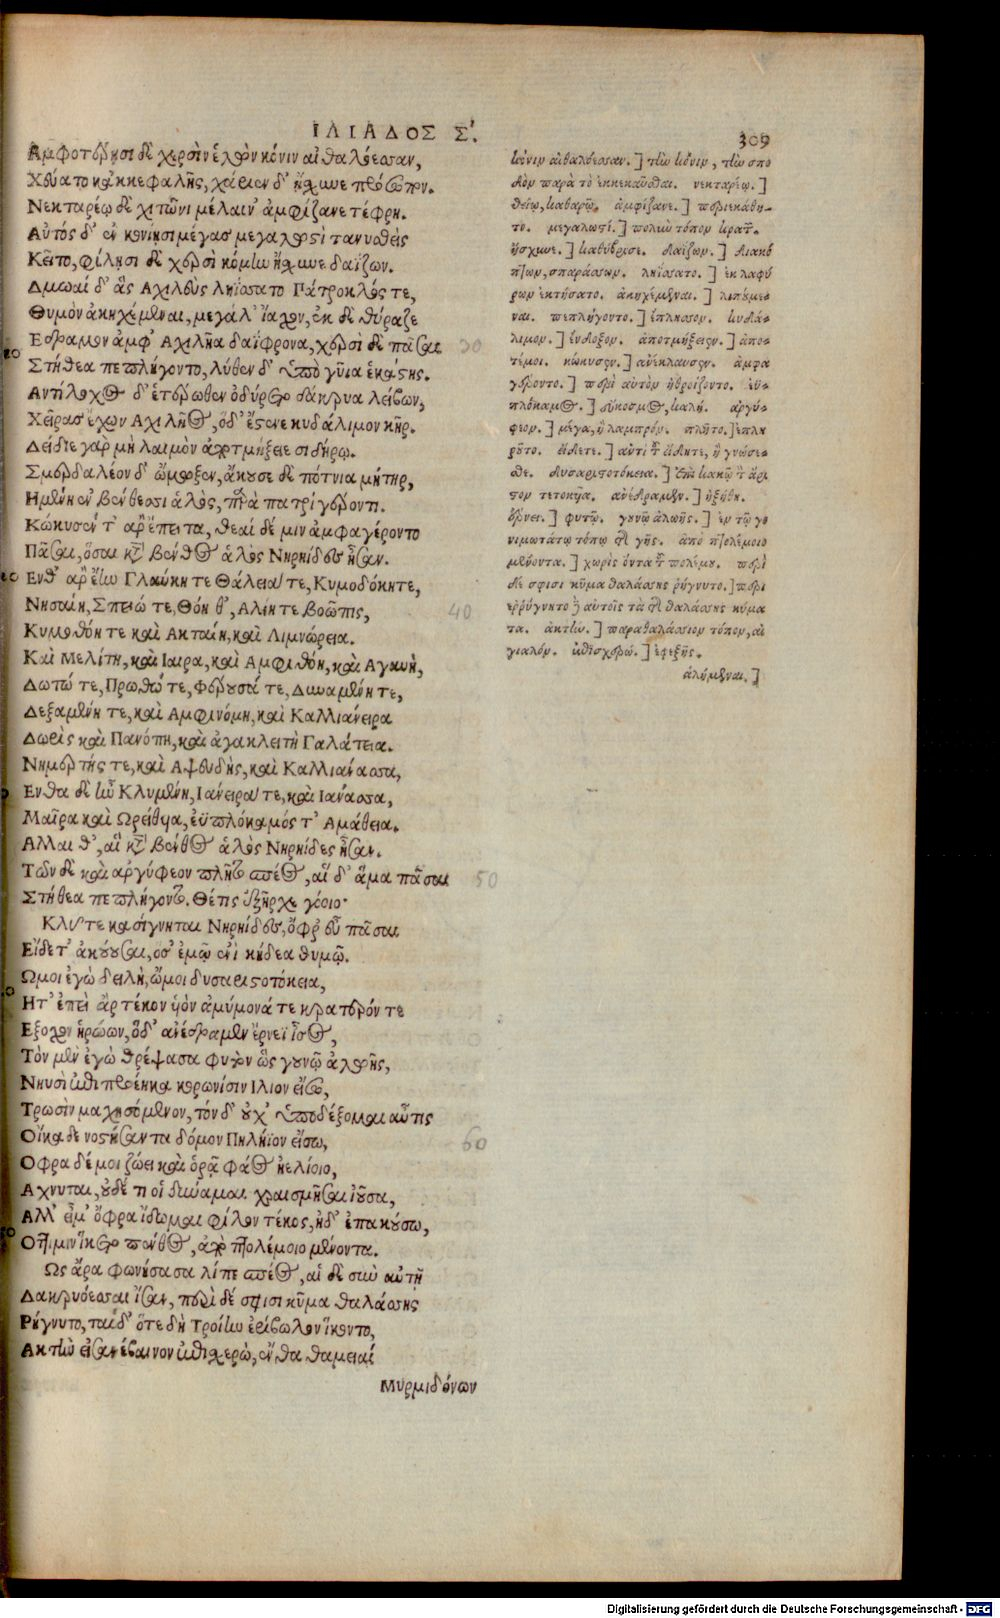 ΙΛΙΑΔΟΣ Σ΄.
309
Αμφοτέρῃσι δὲ χερσὶν ἑλὼν κόνιν αἰθαλόεσσαν,
Χεύατο κἀκκεφαλῆς, χάριεν δ' ᾔσχυνε πρόσωπον.
Νεκταρέῳ δὲ χιτῶνι μέλαιν' ἀμφίζανε τέφρη.
Αὐτός δ' ἐν κονίῃσι μέγας μεγαλωστὶ τανυσθεὶς
Κεῖτο, φίλῃσι δὲ χερσὶ κόμην ᾔσχυνε δαΐζων.
Δμωαί δ' ἃς Αχιλεὺς ληΐσσατο Πάτροκλός τε,
Θυμὸν ἀκηχέμεναι, μεγάλ' ἴαχον, ἐκ δὲ θύραζε
Εδραμον ἀμφ' Αχιλῆα δαΐφρονα, χερσὶ δὲ πᾶσαι
30
Στήθεα πεπλήγοντο, λύθεν δ' ὑπὸ γῦια ἑκάστης.
Αντίλοχος δ' ἑτέρωθεν ὀδύρετο δάκρυα λείβων,
Χεῖρας ἔχων Αχιλῆος, ὅδ' ἔστενε κυδάλιμον κῆρ.
Δείδιε γαρ μὴ λαιμὸν ἀποτμήξειε σιδήρῳ.
Σμερδαλέον δ' ὤμωξεν, ἄκουσε δὲ πότνια μήτηρ,
Ημένη ἐν βένθεσσι ἁλὸς, παρὰ πατρὶ γέροντι.
Κώκυσέν τ' ἀρ ἔπειτα, θεαί δέ μιν ἀμφαγέροντο
Πᾶσαι, ὅσαι κατὰ βένθος ἁλὸς Νηρηίδες ἦσαν.
Ενθ' αρ ἔην Γλαύκη τε Θάλειά τε, Κυμοδόκητε,
Νησαίη, Σπειώ τε, Θόη θ', Αλίητε βοῶπις,
40
Κυμοθόη τε καὶ Ακταίη, καὶ Λιμνώρεια.
Καὶ Μελίτη, καὶ Ιαιρα, καὶ Αμφιθόη, καὶ Αγαυὴ,
Δωτώ τε, Πρωθώ τε, Φέρουσά τε, Δυναμένη τε,
Δεξαμένη τε, καὶ Αμφινόμη, καὶ Καλλιάνειρα
Δωρὶς καὶ Πανόπη, καὶ ἀγακλειτὴ Γαλάτεια.
Νημερτής τε, καὶ Αψευδὴς, καὶ Καλλιάνασσα,
Ενθα δὲ ἦν Κλυμένη, Ιάνειρά τε, καὶ Ιάνασσα,
Μαῖρα καὶ Ωρείθυια, ἐϋπλόκαμός τ' Αμάθεια.
Αλλαι θ', αἳ κατὰ βένθος ἁλὸς Νηρηίδες ἦσαν.
Τῶν δὲ καὶ αργύφεον πλῆτο σπέος, αἳ δ' ἅμα πᾶσαι
50
Στήθεα πεπλήγοντο. Θέτις ἐξῆρχε γόοιο·
Κλῦτε κασίγνηται Νηρηίδες, ὄφρ εὖ πᾶσαι
Εἴδετ' ἀκούουσαι, ὅσ' ἐμῷ ἐνὶ κήδεα θυμῷ.
Ωμοι ἐγὼ δειλὴ, ὤμοι δυσαριστοτόκεια,
Ητ' ἐπεὶ ἂρ τέκον υἱὸν ἀμύμονά τε κρατερόν τε
Εξοχον ἡρώων, ὅδ' ἀνέδραμεν ἔρνεϊ ἶσος,
Τὸν μὲν ἐγὼ θρέψασα φυτὸν ὣς γουνῷ ἀλωῆς,
Νηυσὶν ἐπιπροέηκα κορωνίσιν Ιλιον εἴσω,
Τρωσὶν μαχησόμενον, τόν δ' οὐχ' ὑποδέξομαι αὖτις
Οἴκαδε νοστήσαντα δόμον Πηλήϊον εἴσω,
60
Οφρα δέ μοι ζώει καὶ ὁρᾷ φάος ἠελίοιο,
Αχνυται, οὐδέ τι οἱ δύναμαι χραισμῆσαι ἰοῦσα,
Αλλ' εἶμ' ὄφρα ἴδωμαι φίλον τέκος, ἠδ' ἐπακούσω,
Οττί μιν ἵκετο πένθος, ἀπὸ πτολέμοιο μένοντα.
Ως ἄρα φωνήσασα λίπε σπέος, αἱ δὲ σὺν αὐτῇ
Δακρυόεσσαι ἴσαν, περὶ δέ σφισι κῦμα θαλάσσης
Ρήγνυτο, ταὶ δ' ὅτε δὴ Τροίην ἐρίβωλον ἵκοντο,
Ακτὴν εἰσανέβαινον ἐπισχερὼ, ἔνθα θαμειαί
Μυρμιδόνων
κόνιν αἰθαλόεσσαν.] τὴν κόνιν, τὴν σπο
δὸν παρὰ τὸ ἐκκεκαῦσθαι. νεκταρέῳ.]
θείῳ, καθαρῷ. ἀμφίζανε.] περιεκάθη-
το. μεγαλωστί.] πολὺν τόπον κρατῶν.
ᾔσχυνε.] καθύβρισε. δαΐζων.] διακό
πτων, σπαράσσων. ληΐσατο.] ἐκ λαφύ
ρων ἐκτήσατο. ἀκηχέμεναι.] λυπούμε-
ναι. πεπλήγοντο.] ἔπλησσον. κυδά-
λιμον.] ἔνδοξον. ἀποτμήξειεν.] ἀπο-
τέμοι. κώκυσεν.] ἀνέκλαυσεν. ἀμφα
γέροντο.] περὶ αὐτὸν ἠθροίζοντο. ἐϋ-
πλόκαμος.] εὔκοσμος, καλή. αργύ-
φεον.] μέγα, ἢ λαμπρόν. πλῆτο.] ἐπλη
ροῦτο. εἴδετε.] ἀντὶ τοῦ εἴδητε, ἢ γνώσε-
σθε. δυσαριστοτόκεια.] ἐπὶ κακῷ τὸ ἄρι
στον τετοκυῖα. ἀνέδραμεν.] ηὐξήθη.
ἔρνει.] φυτῷ. γουνῷ ἀλωῆς.] ἐν τῷ γο
νιμωτάτῳ τόπῳ τῆς γῆς. ἀπὸ πτολέμοιο
μένοντα.] χωρὶς ὄντα τοῦ πολέμου. περὶ
δέ σφισι κῦμα θαλάσσης ῥήγνυτο.] περι
ερρήγνυντο δὲ αὐτοῖς τὰ τῆς θαλάσσης κύμα
τα. ἀκτὴν.] παραθαλάσσιον τόπον, αἰ
γιαλόν. ἐπισχερώ.] ἐφεξῆς.
ἀλήμεναι.]
Digitalisierung gefördert durch die Deutsche Forschungsgemeinschaft - DFG